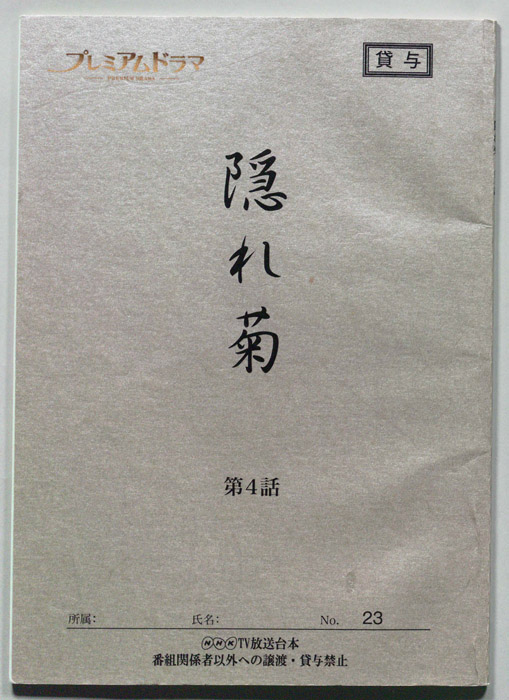 プレミアムドラマ
PREMIUM DRAMA
貸与
隠れ菊
第4話
所属: 氏名: No. 23
NHK TV放送台本
番組関係者以外への譲渡・貸与禁止